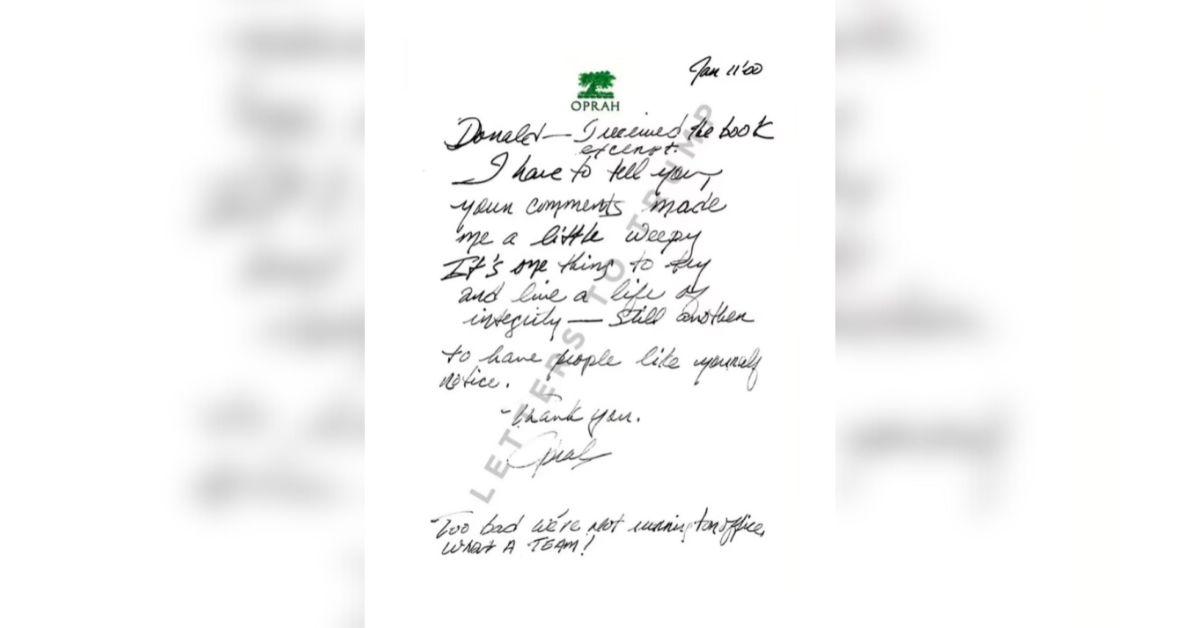 Jan 11'00
OPRAH
Donald — I received the book
excerpt.
I have to tell you,
your comments made
me a little weepy
It's one thing to try
and live a life of
integrity — still another
to have people like yourself
notice.
-Thank you.
Oprah
-Too bad we're not running for office.
WHAT A TEAM!
LETTERS TO TRUMP